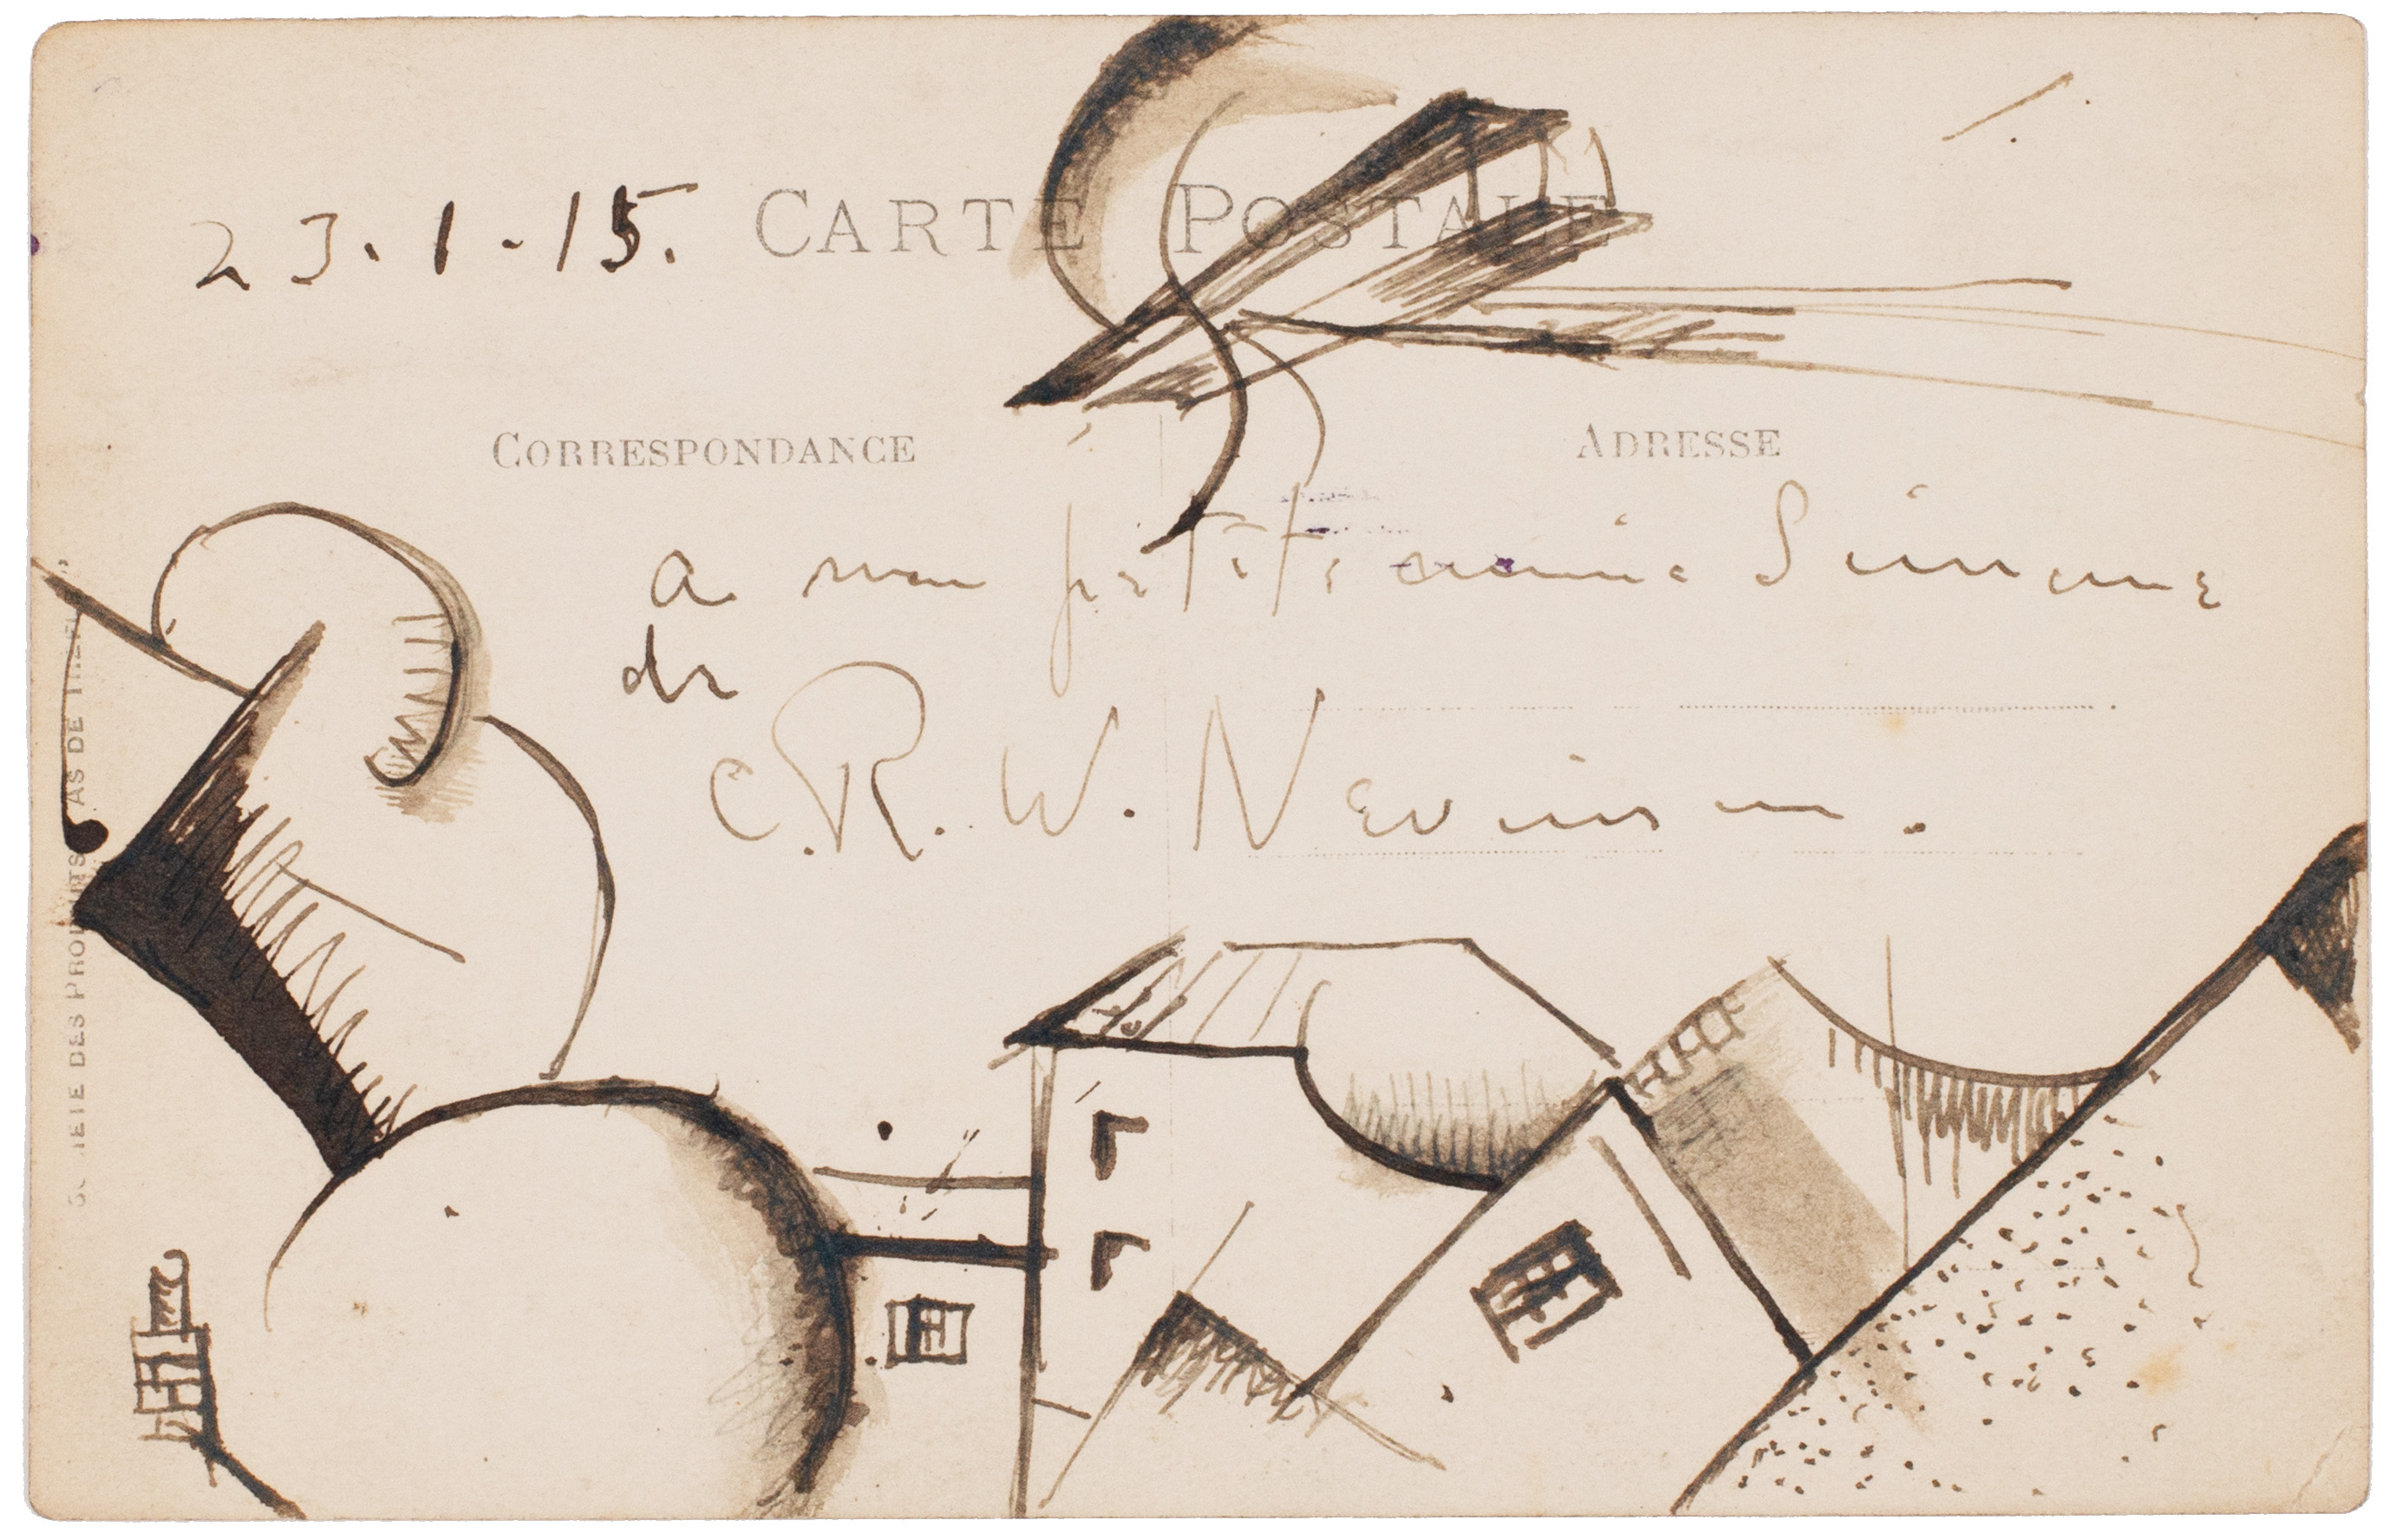 23.1.15. CARTE POSTALE
CORRESPONDANCE
ADRESSE
a mon petite amie Simone
de
C.R.W. Nevinson.
DES PRODUITS AS DE